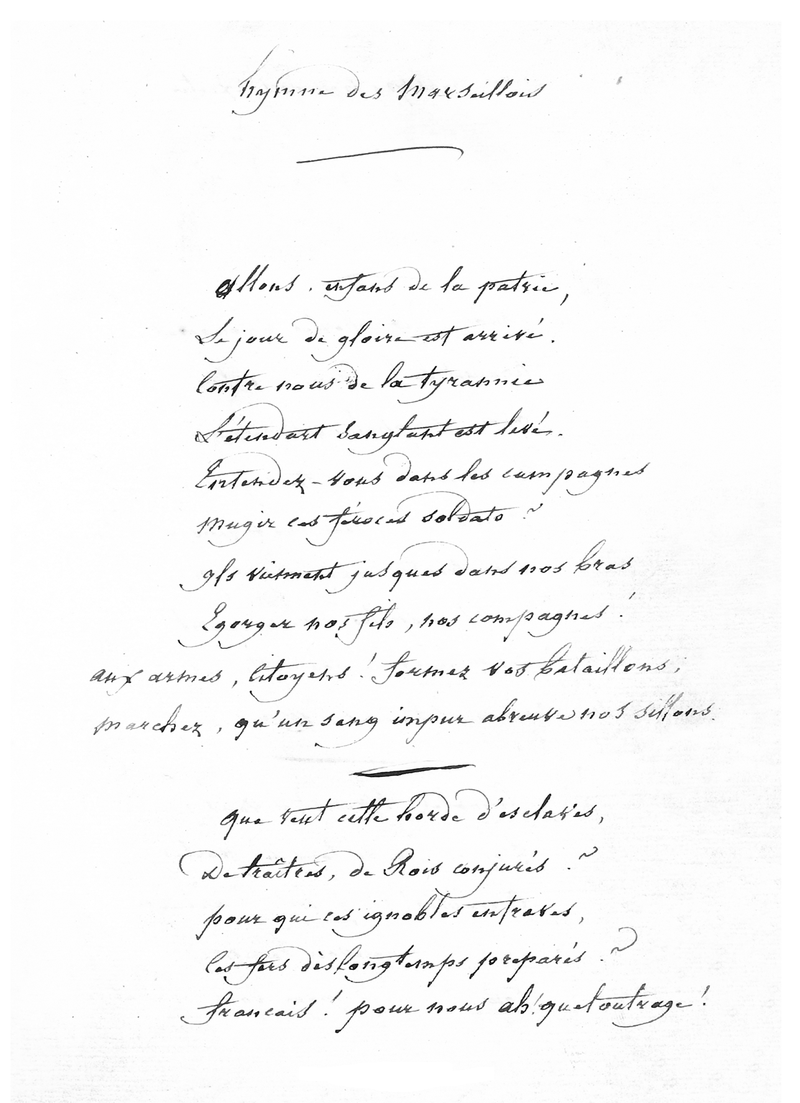 hymne des Marseillois
allons . enfans de la patrie,
Le jour de gloire est arrivé.
Contre nous de la tyrannie
L'étendart sanglant est levé.
Entendez-vous dans les campagnes
Mugir ces féroces soldats ?
Ils viennent jusques dans nos bras
Egorger nos fils, nos compagnes !
aux armes, Citoyens ! formez vos bataillons ;
Marchez, qu'un sang impur abreuve nos sillons.
Que veut cette horde d'esclaves,
De traîtres, de Rois conjurés ?
pour qui ces ignobles entraves,
ces fers dès longtemps preparés ?
francais ! pour nous ah! quel outrage !